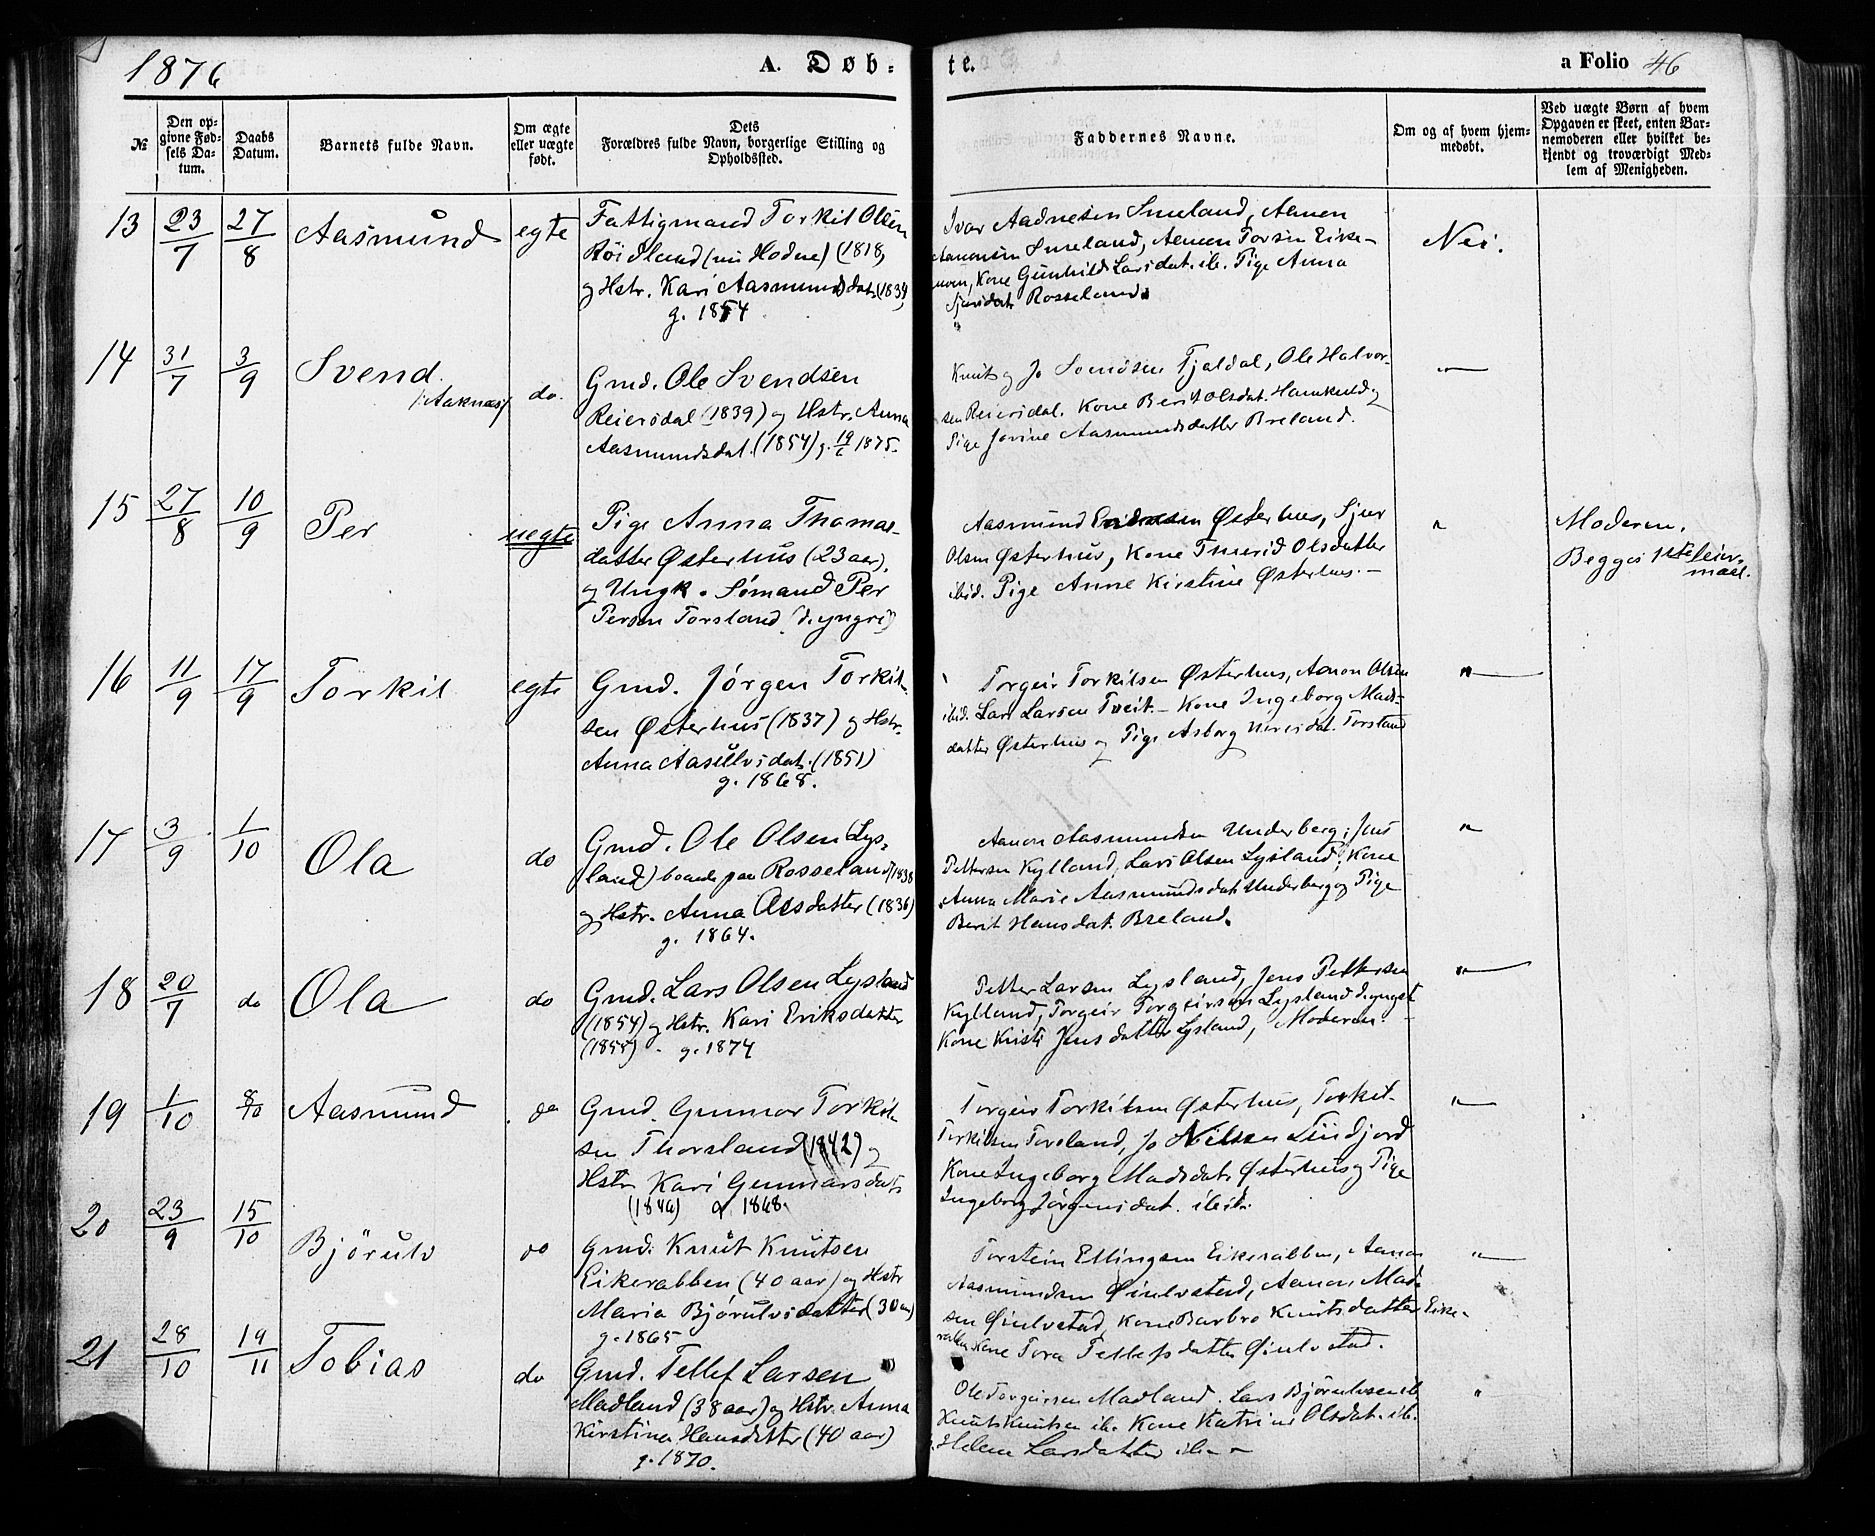 1876
A. Døb-
te.
a Folio 46
№
Den op-
givne Fød-
sels Da-
tum.
Daabs
Datum.
Barnets fulde Navn.
Om ægte
eller uægte
født.
Dets
Forældres fulde Navn, borgerlige Stilling og
Opholdssted.
Faddernes Navne.
Om og af hvem hjem-
medøbt.
Ved uægte Børn af hvem
Opgaven er skeet, enten Bar-
nemoderen eller hvilket be-
kjendt og troværdigt Med-
lem af Menigheden.
13
23/7
27/8
Aasmund
egte
Fattigmand Torkil Olsen
Röidland (nu Hodne) (1818,
og Hstr. Kari Aasmundsdat. (1834)
g. 1854
Ivar Aadnesen Smeland, Aanen
Aanonsen Smeland, Aanen Torsen Eike-
Kone Gunhild Larsdat. ib. Pige Anna
Sjursdat. Rosseland
Nei.
14
31/7
3/9
Svend
(Aaknæs)
do.
Gmd. Ole Svendsen
Reiersdal (1839) og Hstr. Anna
Aasmundsdat. (1854) g. 1875.
Knut og Jo Svendsen Tjaldal, Ole Halvor-
sen Reiersdal. Kone Berit Olsdat. Hamkuld og
Pige Jorine Aasmundsdatter Breland.
"
15
27/8
10/9
Per
uegte
Pige Anna Thomas-
datter Østerhus (23 aar).
og Ungk. Sømand Per
Persen Torsland (d. yngre)
Aasmund Østerhus, Sjur
Olsen Østerhus, Kone Thurid Olsdatter
ibid. Pige Anne Kirstine Østerhus.
"
Moderen.
Begges 1ste leier-
maal.
16
11/9
17/9
Torkil
egte
Gmd. Jörgen Torkil-
sen Østerhus (1837) og Hstr.
Anna Aasulvsdat. (1851)
g. 1868.
Torgeir Torkilsen Østerhus, Aanon Olsen
ibid. Lars Larsen Tveit. Kone Ingeborg Mads-
datter Østerhus og Pige Asborg Torsland
"
17
3/9
1/10
Ola
do
Gmd. Ole Olsen (Lys-
land) boende paa Rosseland (1838
og Hstr. Anna Olsdatter (1836)
g. 1864.
Aanon Aasmundsen Underberg, Jens
Pettersen Kylland, Lars Olsen Lysland, Kone
Anna Marie Aasmundsdat. Underberg og Pige
Berit Hansdat. Breland.
"
18
20/7
do
Ola
do
Gmd. Lars Olsen Lysland
(1854) og Hstr. Kari Eriksdatter
(1855) g. 1874
Petter Larsen Lysland, Jens Pettersen
Kylland, Torgeir Torgeirsen Lysland d. yngst
Kone Kristi Jensdatter Lysland, Moderen.
"
19
1/10
8/10
Aasmund
do
Gmd. Gunnar Torkil-
sen Thorsland (1842) og
Hstr. Kari Gunnarsdat.
(1846) g. 1868.
Torgeir Torkilsen Østerhus, Torkil
Torkilsen Torsland, Jo Nilsen Lindjord
Kone Ingeborg Madsdat. Østerhus og Pige
Ingeborg Jörgensdat. ibid.
"
20
23/9
15/10
Björulv
do
Gmd. Knut Knutsen
Eikerabben (40 aar) og Hstr
Maria Björulvsdatter (30 aar)
g. 1865
Torstein Ellingsen Eikerabben, Aanon
Aasmundsen Øiulvstad, Aanon Mad-
sen Øiulvstad, Kone Barbro Knutsdatter Eike-
rabben Kone Tora Tellefsdatter Øiulvstad.
"
21
28/10
19/11
Tobias
do
Gmd. Tellef Larsen
Madland (38 aar) og Hstr. Anna
Kirstine Hansdatter (40 aar)
g. 1870.
Ole Torgeirsen Madland. Lars Björulvsen ib.
Knut Knutsen ib. Kone Katrine Olsdat. ib.
Helene Larsdatter ib.
"